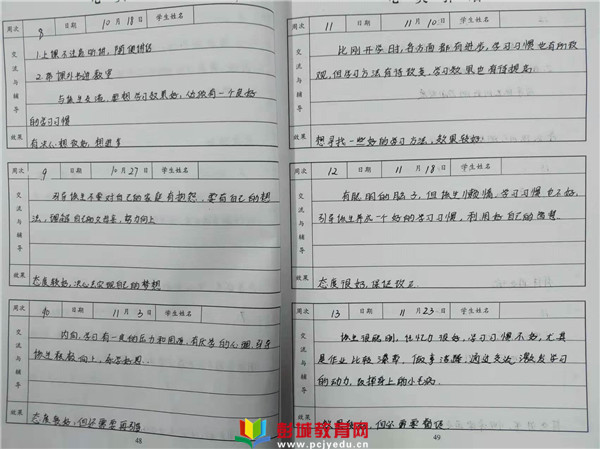 周次 8 日期 10月18日 学生姓名
交流与辅导
1.上课不注意听讲，随便讲话
2.带课外书进教室
与他交流，要想学习效果好，必须有一个良好
的学习习惯
效果 有决心想做好，想进步
周次 9 日期 10月27日 学生姓名
交流与辅导
引导他不要对自己的家庭有抱怨，要有自己的想
法，调整自己的心态，努力向上
效果 态度较好，决心去实现自己的梦想
周次 10 日期 11月3日 学生姓名
交流与辅导
内向，学习有一定的压力和困难，有厌学的心理，引导
他积极向上，
效果 态度较好，但还需要再引导
48
周次 11 日期 11月10日 学生姓名
交流与辅导
比刚开学时，各方面都有进步，学习习惯也有所改
观，但学习方法有待改变，学习效果也有待提高
效果 想寻找一些好的学习方法，效果较好
周次 12 日期 11月18日 学生姓名
交流与辅导
有聪明的脑子，但他生性懒惰，学习习惯也不好，
引导他要养成一个好的学习习惯，利用好自己的智慧
效果 态度很好，保证改正
周次 13 日期 11月23日 学生姓名
交流与辅导
他生很聪明，记忆力很好，学习习惯不好，尤其
是作业比较潦草，做事浮躁，通过交流，激发学习
的动力，改掉身上的小毛病
效果 但还需要
49
射城教育网
www.pcjyedu.cn